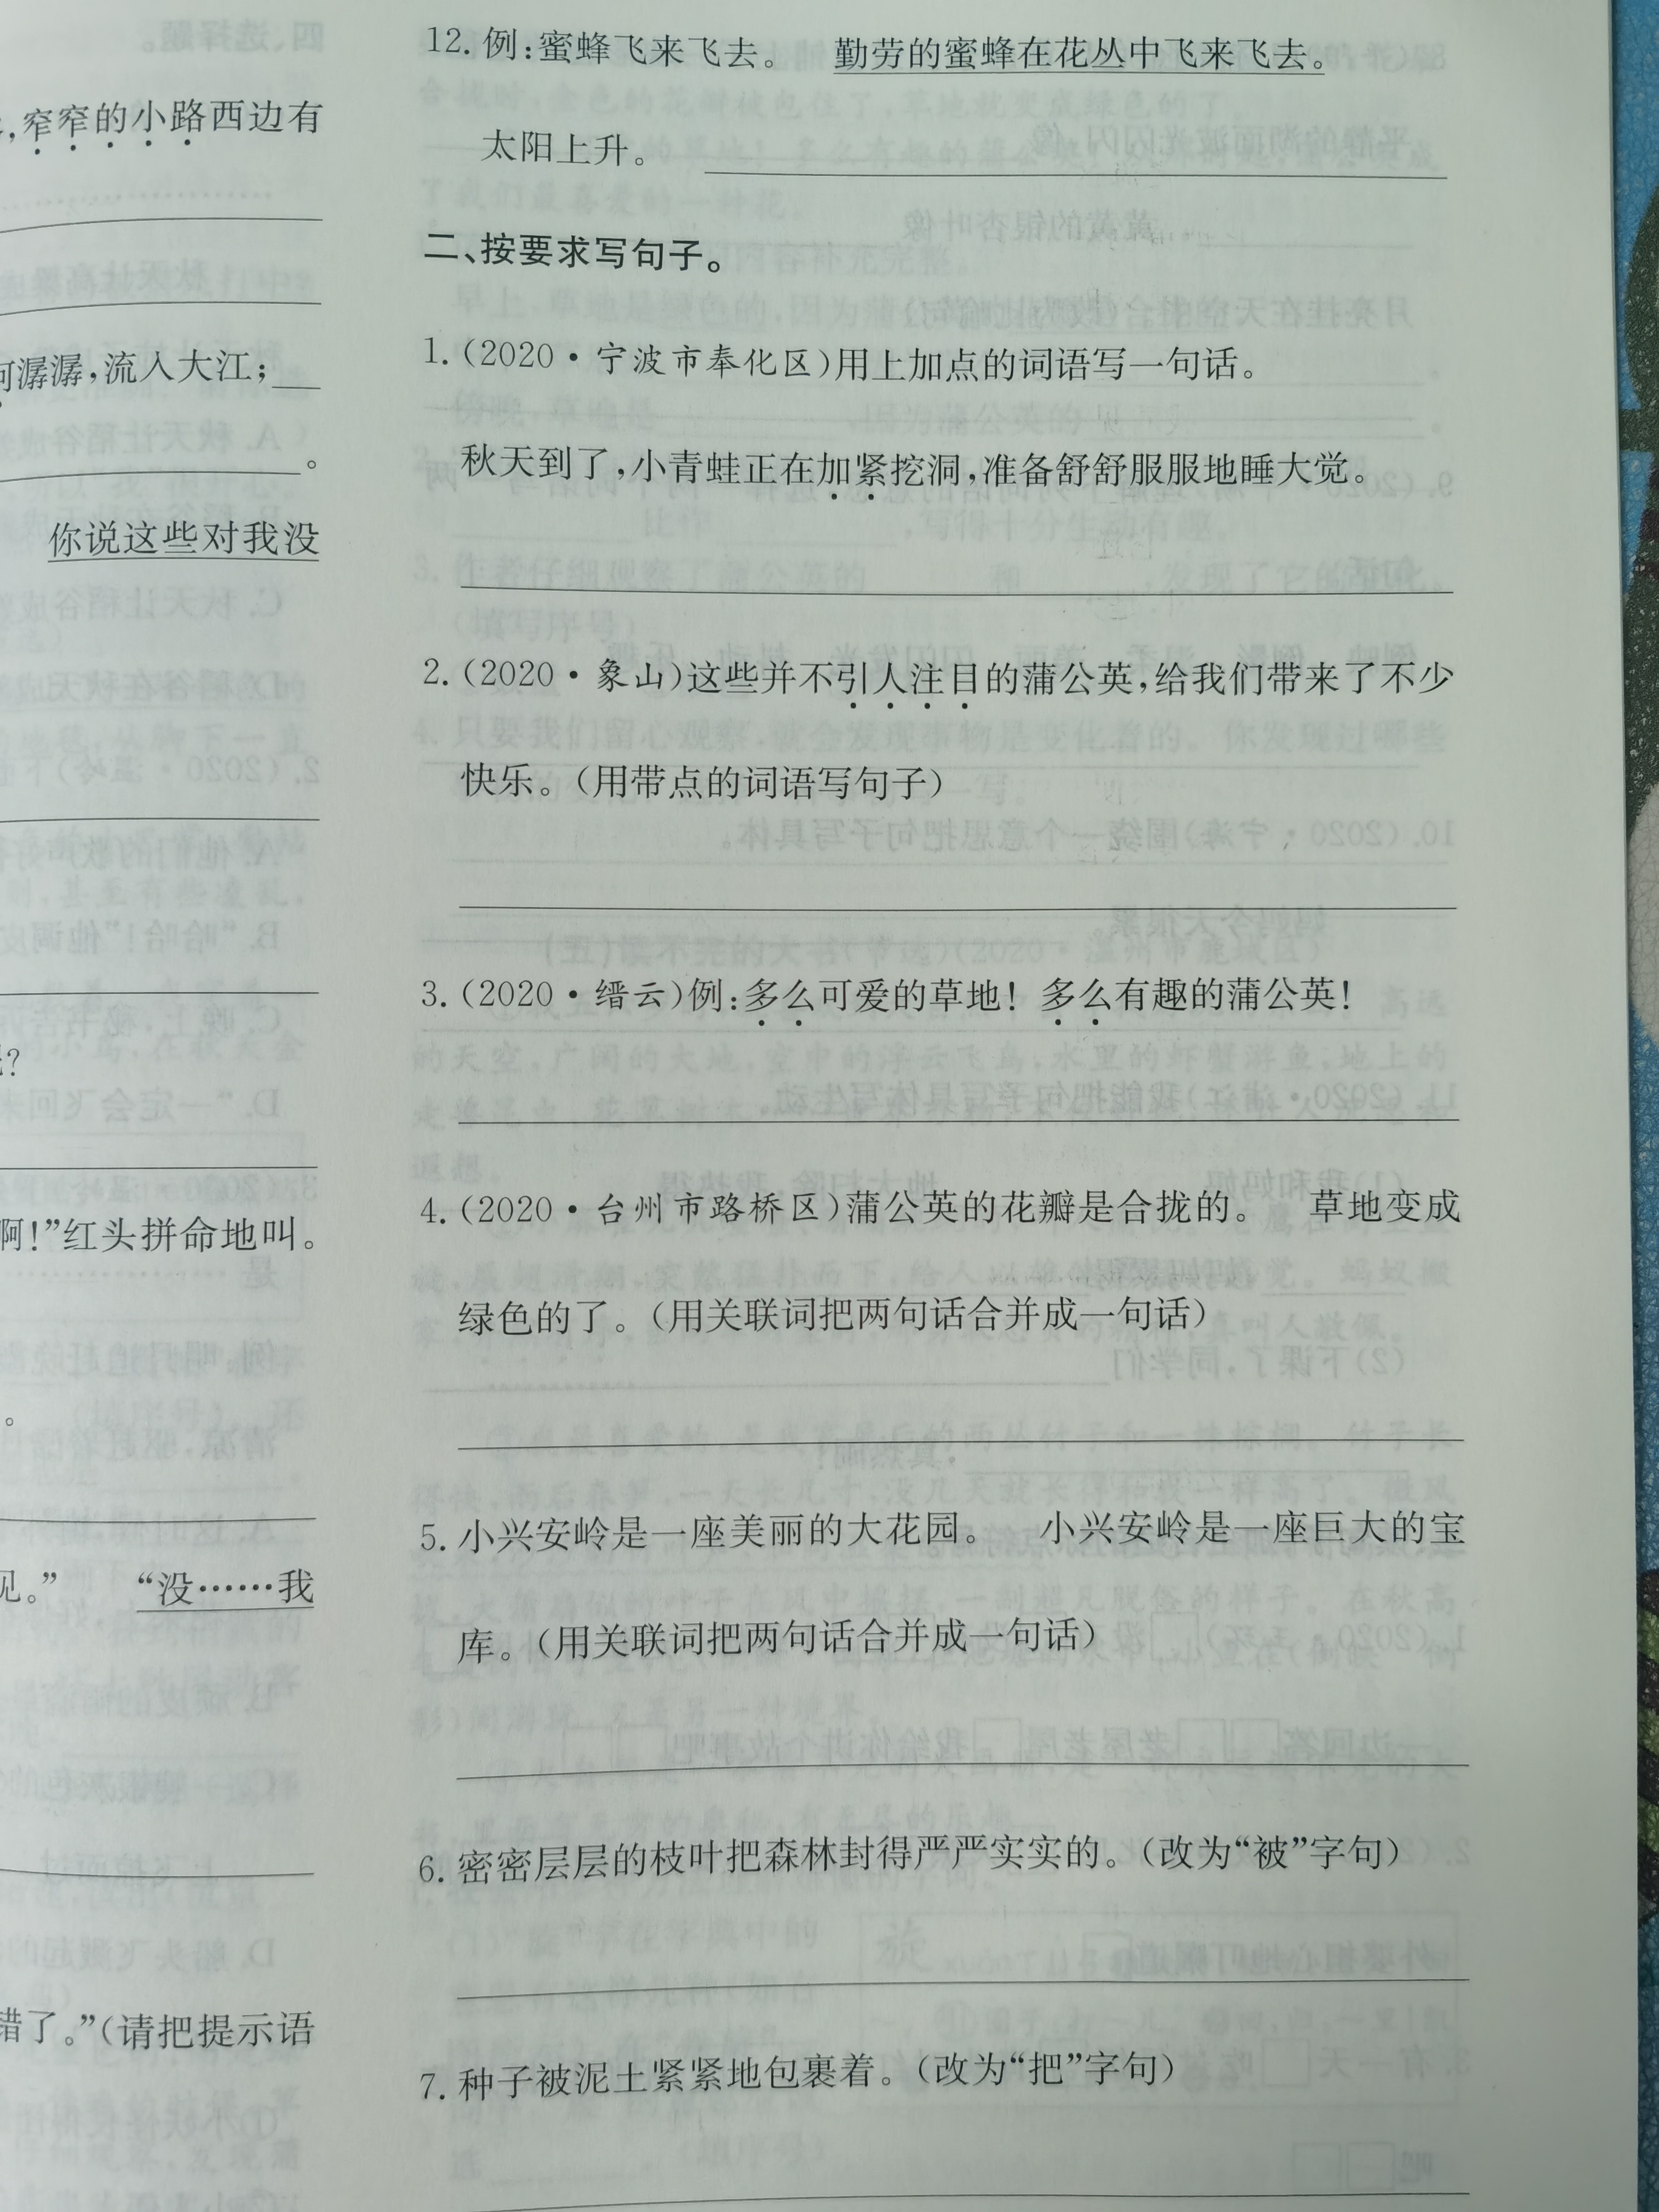 ,窄窄的小路西边有
潺潺,流入大江;
。
你说这些对我没
?
啊!”红头拼命地叫。
。
见。” “没……我
错了。”(请把提示语
12. 例:蜜蜂飞来飞去。 勤劳的蜜蜂在花丛中飞来飞去。
太阳上升。
二、按要求写句子。
1. (2020·宁波市奉化区)用上加点的词语写一句话。
秋天到了,小青蛙正在加紧挖洞,准备舒舒服服地睡大觉。
2. (2020·象山)这些并不引人注目的蒲公英,给我们带来了不少
快乐。(用带点的词语写句子)
3. (2020·缙云)例:多么可爱的草地! 多么有趣的蒲公英!
4. (2020·台州市路桥区)蒲公英的花瓣是合拢的。 草地变成
绿色的了。(用关联词把两句话合并成一句话)
5. 小兴安岭是一座美丽的大花园。 小兴安岭是一座巨大的宝
库。(用关联词把两句话合并成一句话)
6. 密密层层的枝叶把森林封得严严实实的。(改为“被”字句)
7. 种子被泥土紧紧地包裹着。(改为“把”字句)